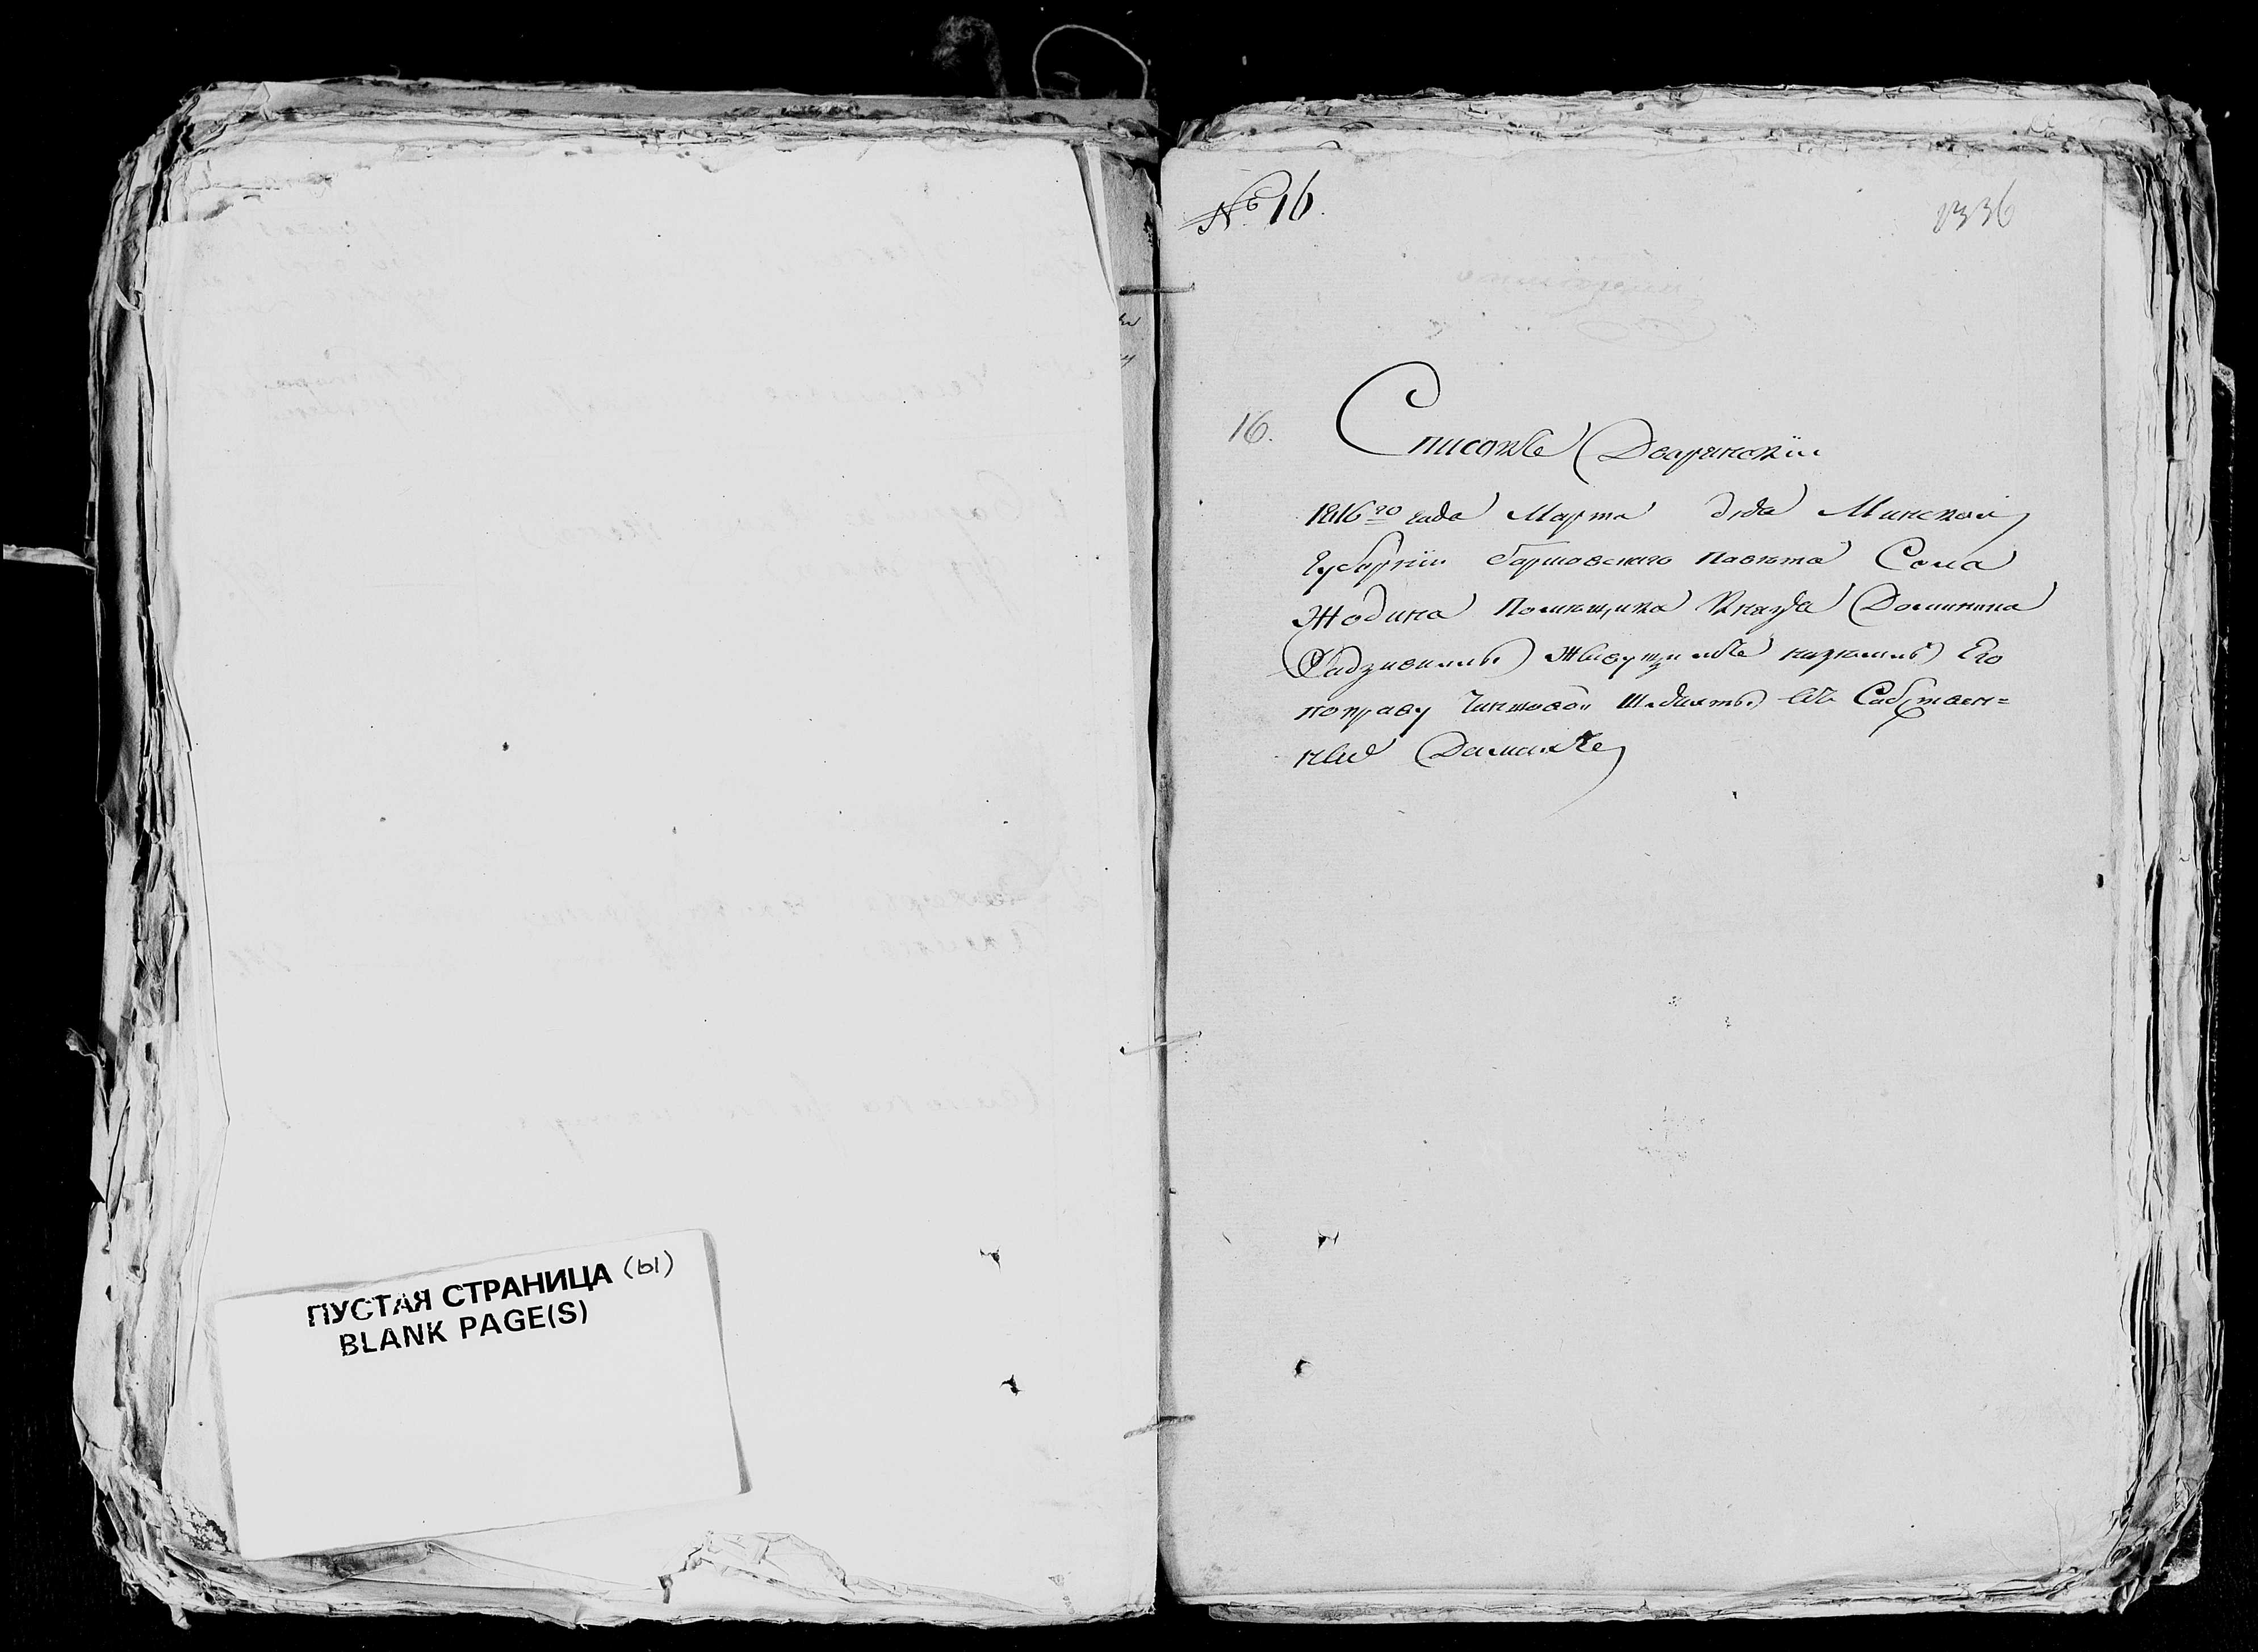 ПУСТАЯ СТРАНИЦА (ы)
BLANK PAGE(S)
№ 16.
1336
16.
Списокъ Дворянскій
1816го года Марта дня Минской
Губерніи Борисовскаго Повета Села
Жодина Помещика Князя Доминика
Радзивила Живущимъ на земли Его
по праву Чиншовой Шляхты въ Собствен=
ныхъ